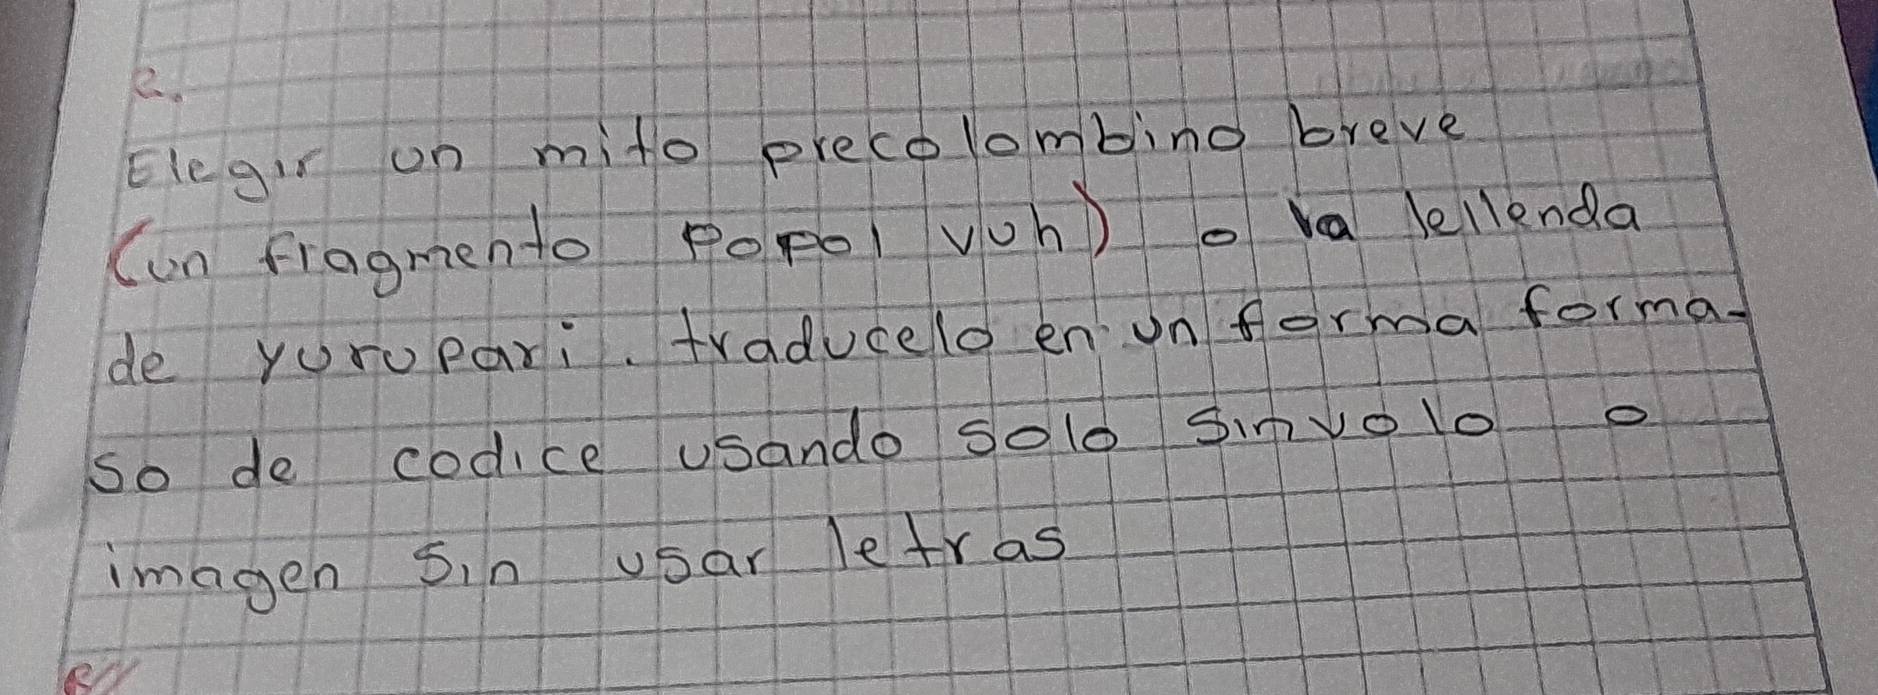 e.
Elegir un mito precolombino breve
(un fragmento Popol vuh) o la lellenda
de yurupari. traducelo en un forma forma-
so de codice usando solo sinvolo o
imagen sin usar letras
R//